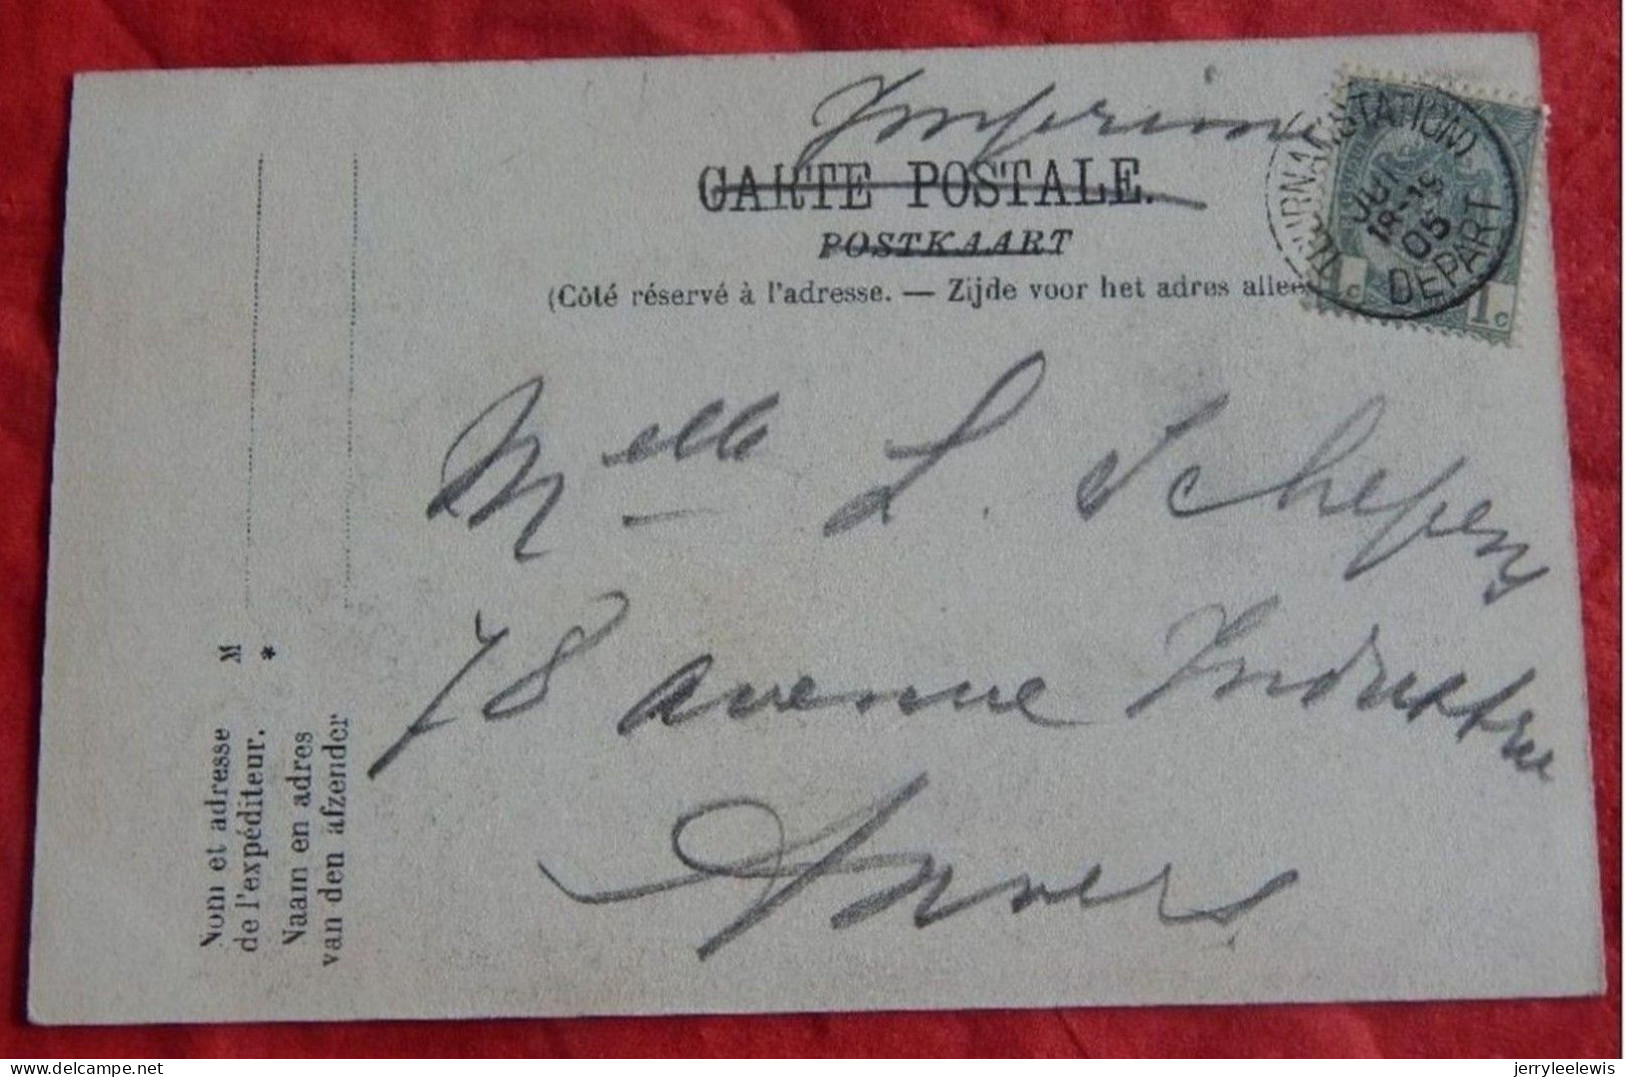 Imprimé
CARTE POSTALE.
POSTKAART
(Côté réservé à l'adresse. — Zijde voor het adres alleen
TOURNAI (STATION)
18-19
05
DEPART
1c 1c
Melle L. Schepens
78 avenue Industrie
Anvers
M
*
Nom et adresse
de l'expéditeur.
Naam en adres
van den afzender
delcampe.net
jerryleelewis